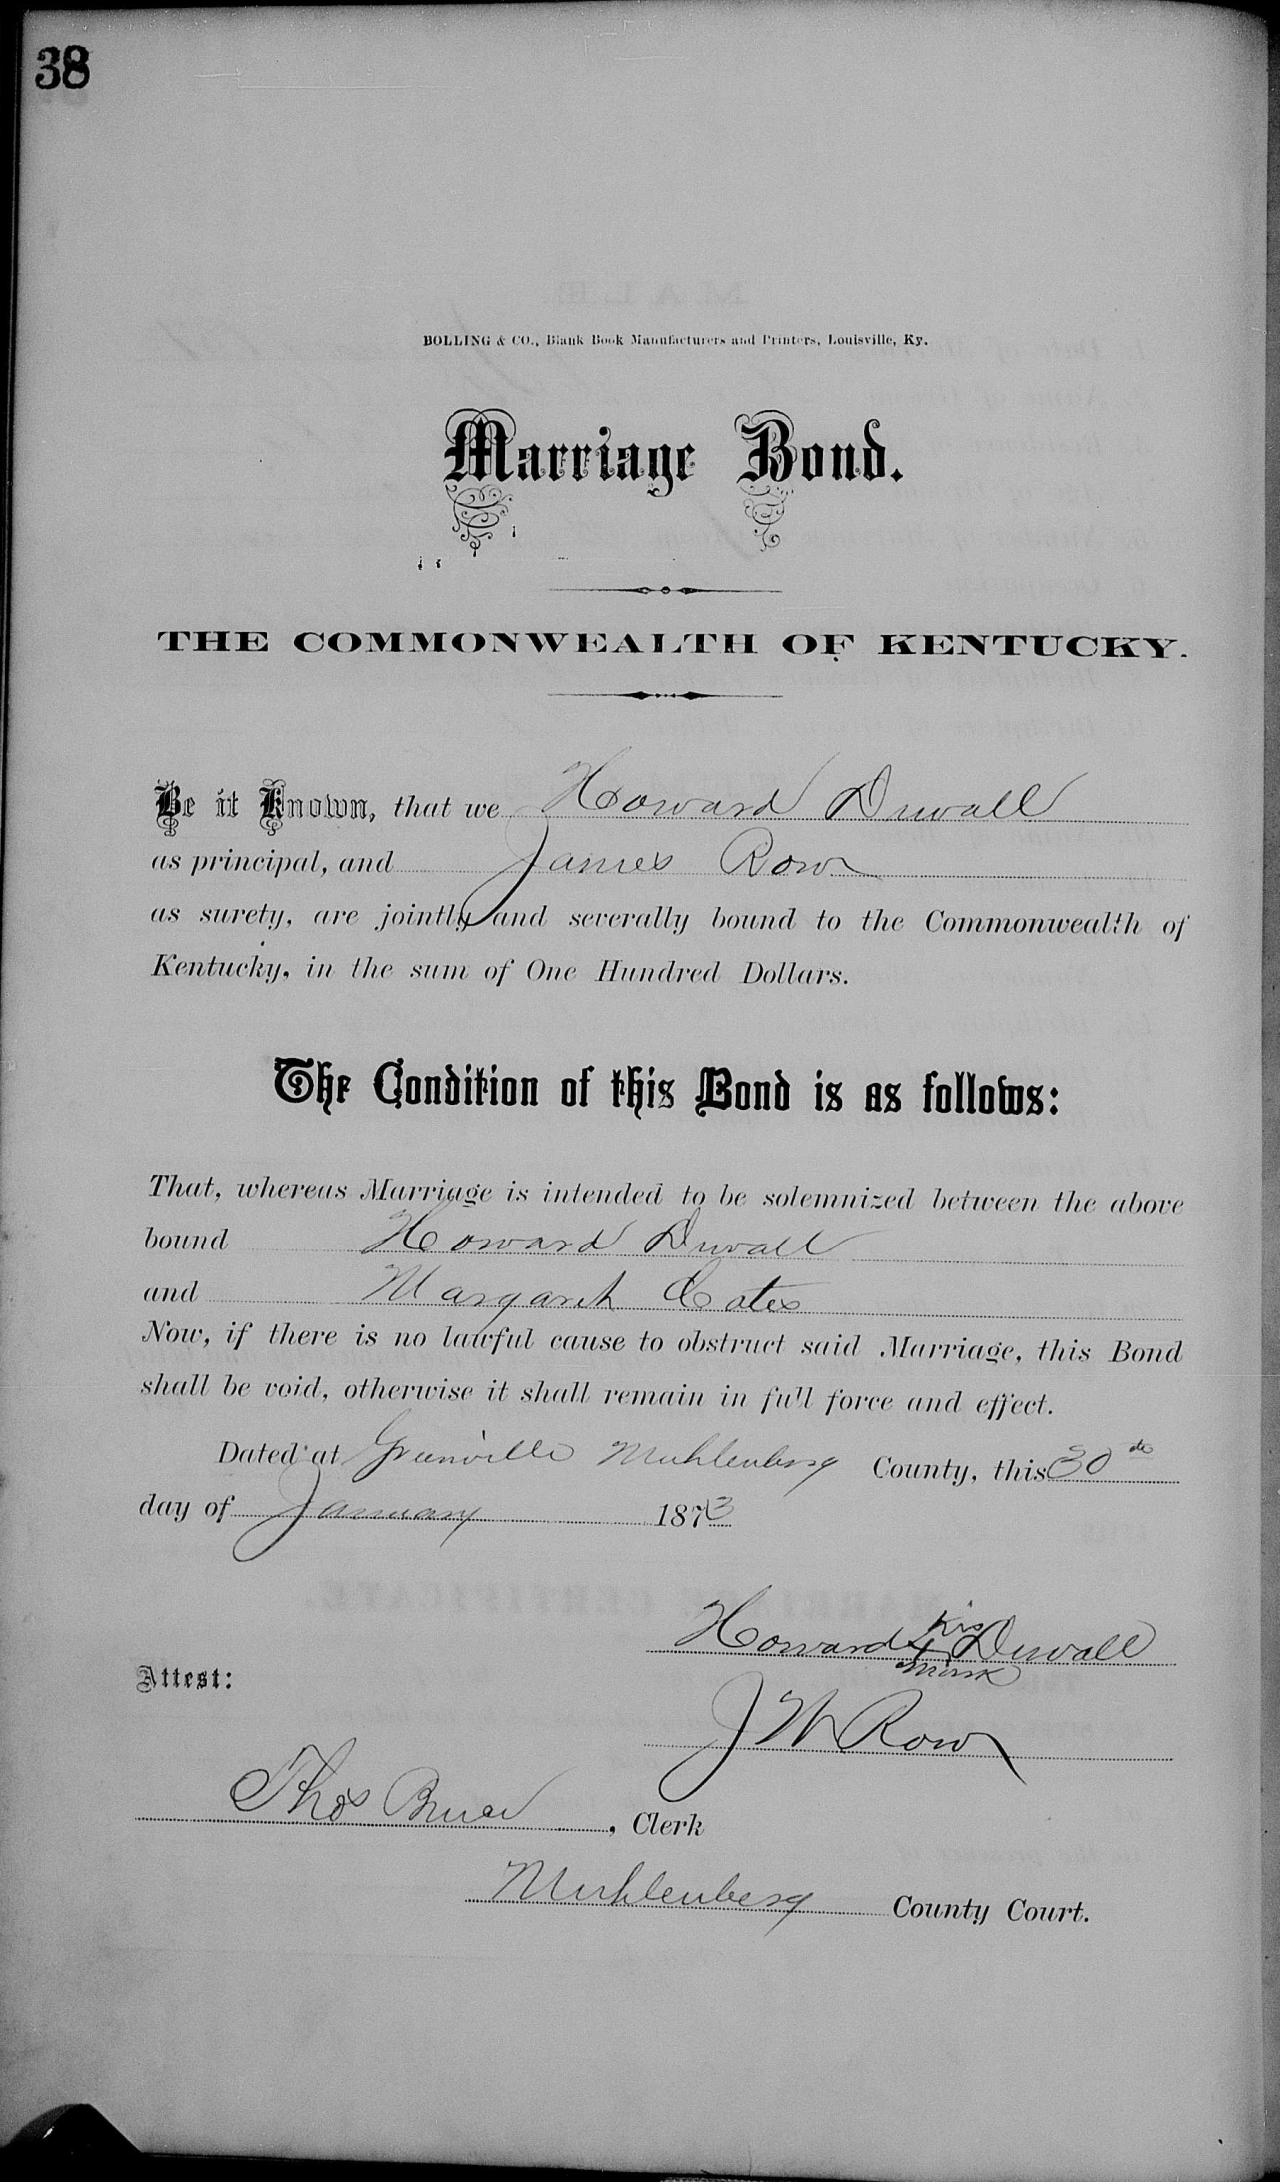 38
BOLLING & CO., Blank Book Manufacturers and Printers, Louisville, Ky.
Marriage Bond.
THE COMMONWEALTH OF KENTUCKY.
Be it Known, that we Howard Duvall
as principal, and James Row
as surety, are jointly and severally bound to the Commonwealth of
Kentucky, in the sum of One Hundred Dollars.
The Condition of this Bond is as follows:
That, whereas Marriage is intended to be solemnized between the above
bound Howard Duvall
and Margaret Cates
Now, if there is no lawful cause to obstruct said Marriage, this Bond
shall be void, otherwise it shall remain in full force and effect.
Dated at Greenville Muhlenberg County, this 30
day of January 1873
his
Howard X Duvall
mark
Attest:
J W Row
Thos Bruce, Clerk
Muhlenberg County Court.